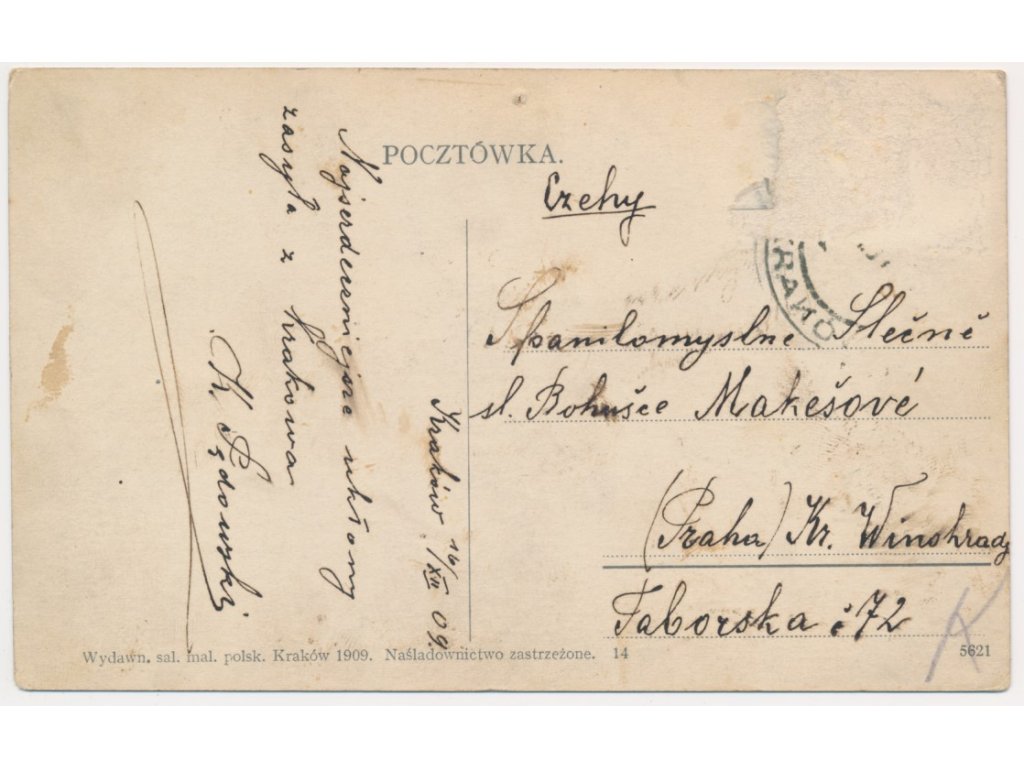 POCZTÓWKA.
Kraków 16/XII 09.
Najserdeczniejsze ukłony
zasyła z Krakowa
K.
Czehy
KRAKÓ
Slečně
sl. Bohušce Makešové
(Praha) Kr. Winohrady
Taborska č 72
Wydawn. sal. mal. polsk. Kraków 1909. Naśladownictwo zastrzeżone. 14
5621
K